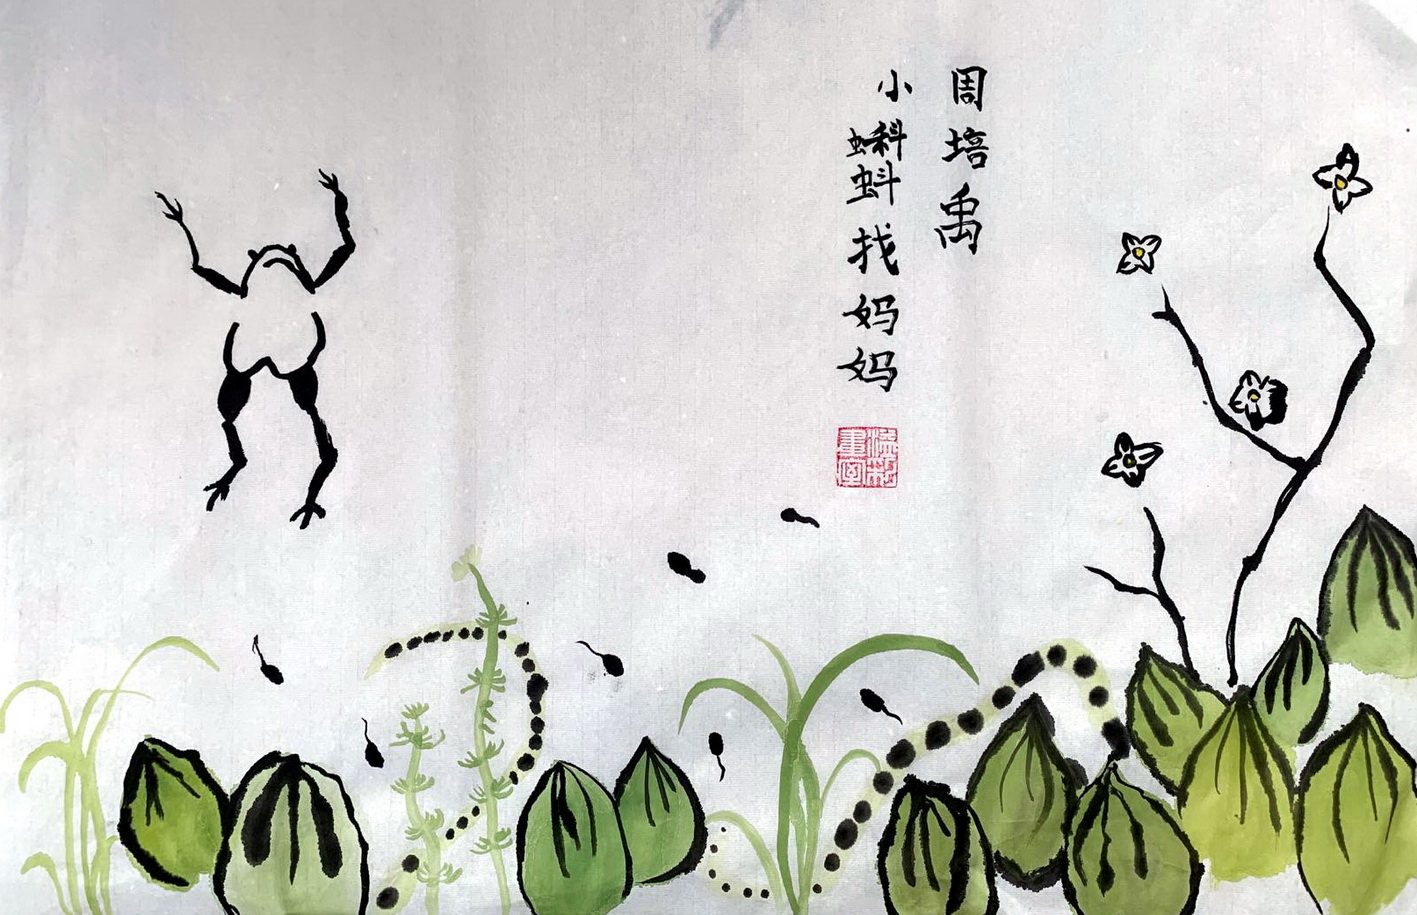 周培禹
小蝌蚪找妈妈